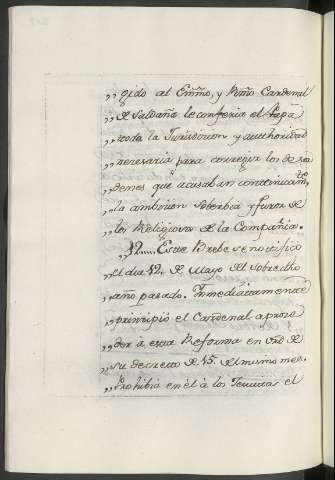 „gido al Emmo, y Rmo Cardenal
„de Saldaña le conferia el Papa
„toda la Jurisdicion y authoridad
„necesaria para corregir los desor
„denes que acusaban continuamte
„la ambicion soberbia y furor de
„los Religiosos de la Compañia.
„12.... Este Brebe se notifico
„el dia 12. de Mayo del sobredho
„año pasado. Immediatamente
„principió el Cardenal a proce
„der à esta Reforma en vrd de
„su decreto de 15. del mismo mes.
„Prohibia en el à los Jesuitas el